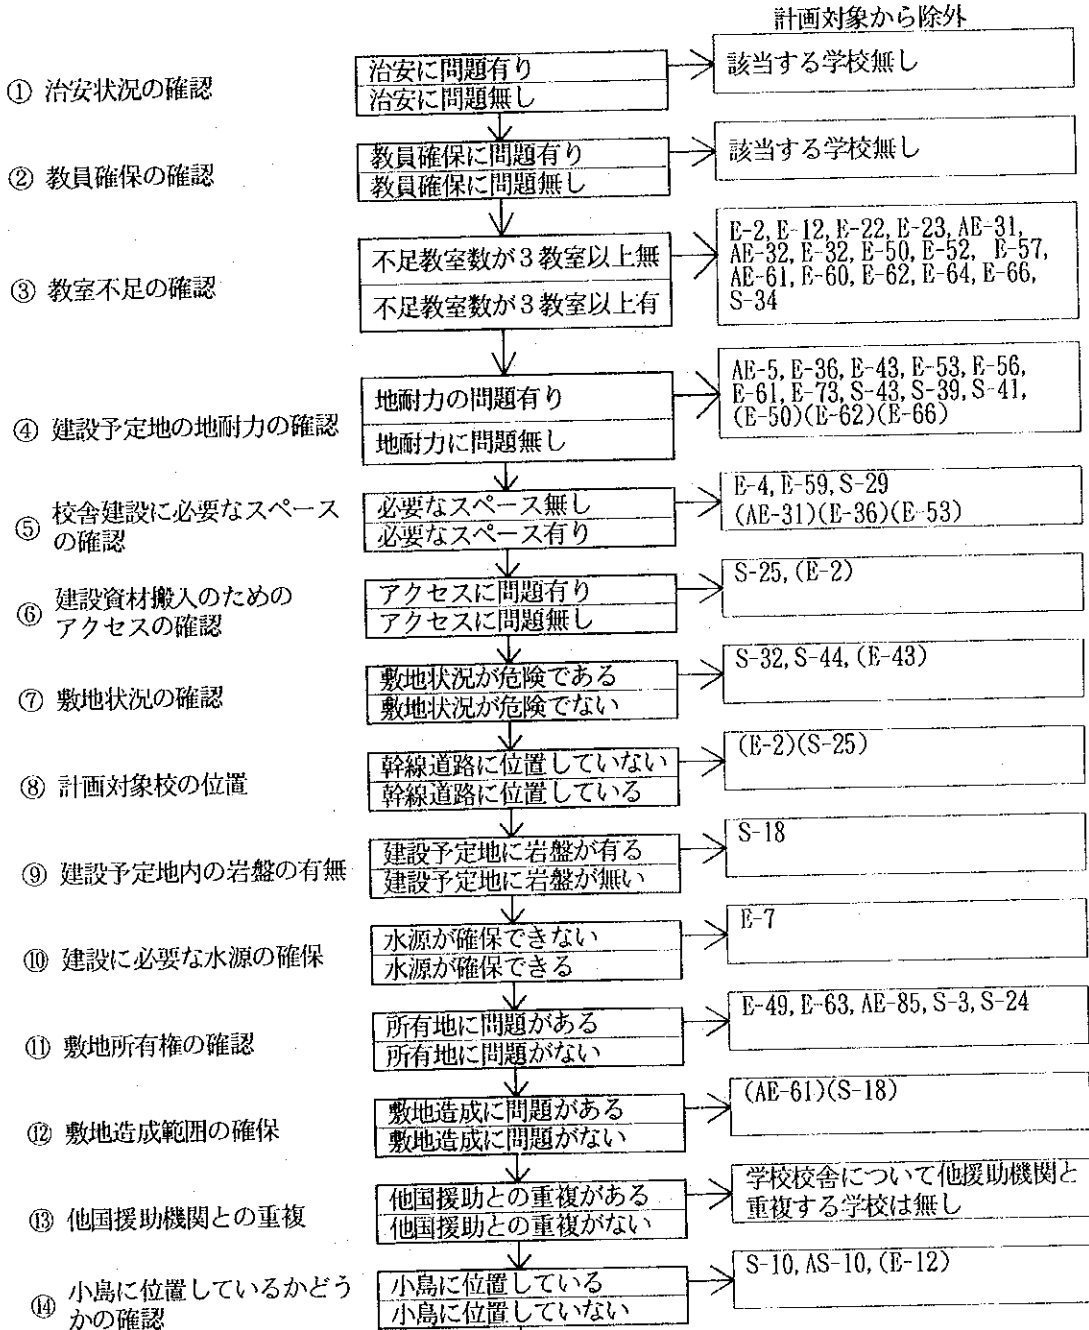 計画対象から除外
① 治安状況の確認
治安に問題有り
治安に問題無し
該当する学校無し
② 教員確保の確認
教員確保に問題有り
教員確保に問題無し
該当する学校無し
③ 教室不足の確認
不足教室数が3教室以上無
不足教室数が3教室以上有
E-2, E-12, E-22, E-23, AE-31,
AE-32, E-32, E-50, E-52, E-57,
AE-61, E-60, E-62, E-64, E-66,
S-34
④ 建設予定地の地耐力の確認
地耐力の問題有り
地耐力に問題無し
AE-5, E-36, E-43, E-53, E-56,
E-61, E-73, S-43, S-39, S-41,
(E-50)(E-62)(E-66)
⑤ 校舎建設に必要なスペース
の確認
必要なスペース無し
必要なスペース有り
E-4, E-59, S-29
(AE-31)(E-36)(E-53)
⑥ 建設資材搬入のための
アクセスの確認
アクセスに問題有り
アクセスに問題無し
S-25, (E-2)
⑦ 敷地状況の確認
敷地状況が危険である
敷地状況が危険でない
S-32, S-44, (E-43)
⑧ 計画対象校の位置
幹線道路に位置していない
幹線道路に位置している
(E-2)(S-25)
⑨ 建設予定地内の岩盤の有無
建設予定地に岩盤が有る
建設予定地に岩盤が無い
S-18
⑩ 建設に必要な水源の確保
水源が確保できない
水源が確保できる
E-7
⑪ 敷地所有権の確認
所有地に問題がある
所有地に問題がない
E-49, E-63, AE-85, S-3, S-24
⑫ 敷地造成範囲の確保
敷地造成に問題がある
敷地造成に問題がない
(AE-61)(S-18)
⑬ 他国援助機関との重複
他国援助との重複がある
他国援助との重複がない
学校校舎について他援助機関と
重複する学校は無し
⑭ 小島に位置しているかどう
かの確認
小島に位置している
小島に位置していない
S-10, AS-10, (E-12)